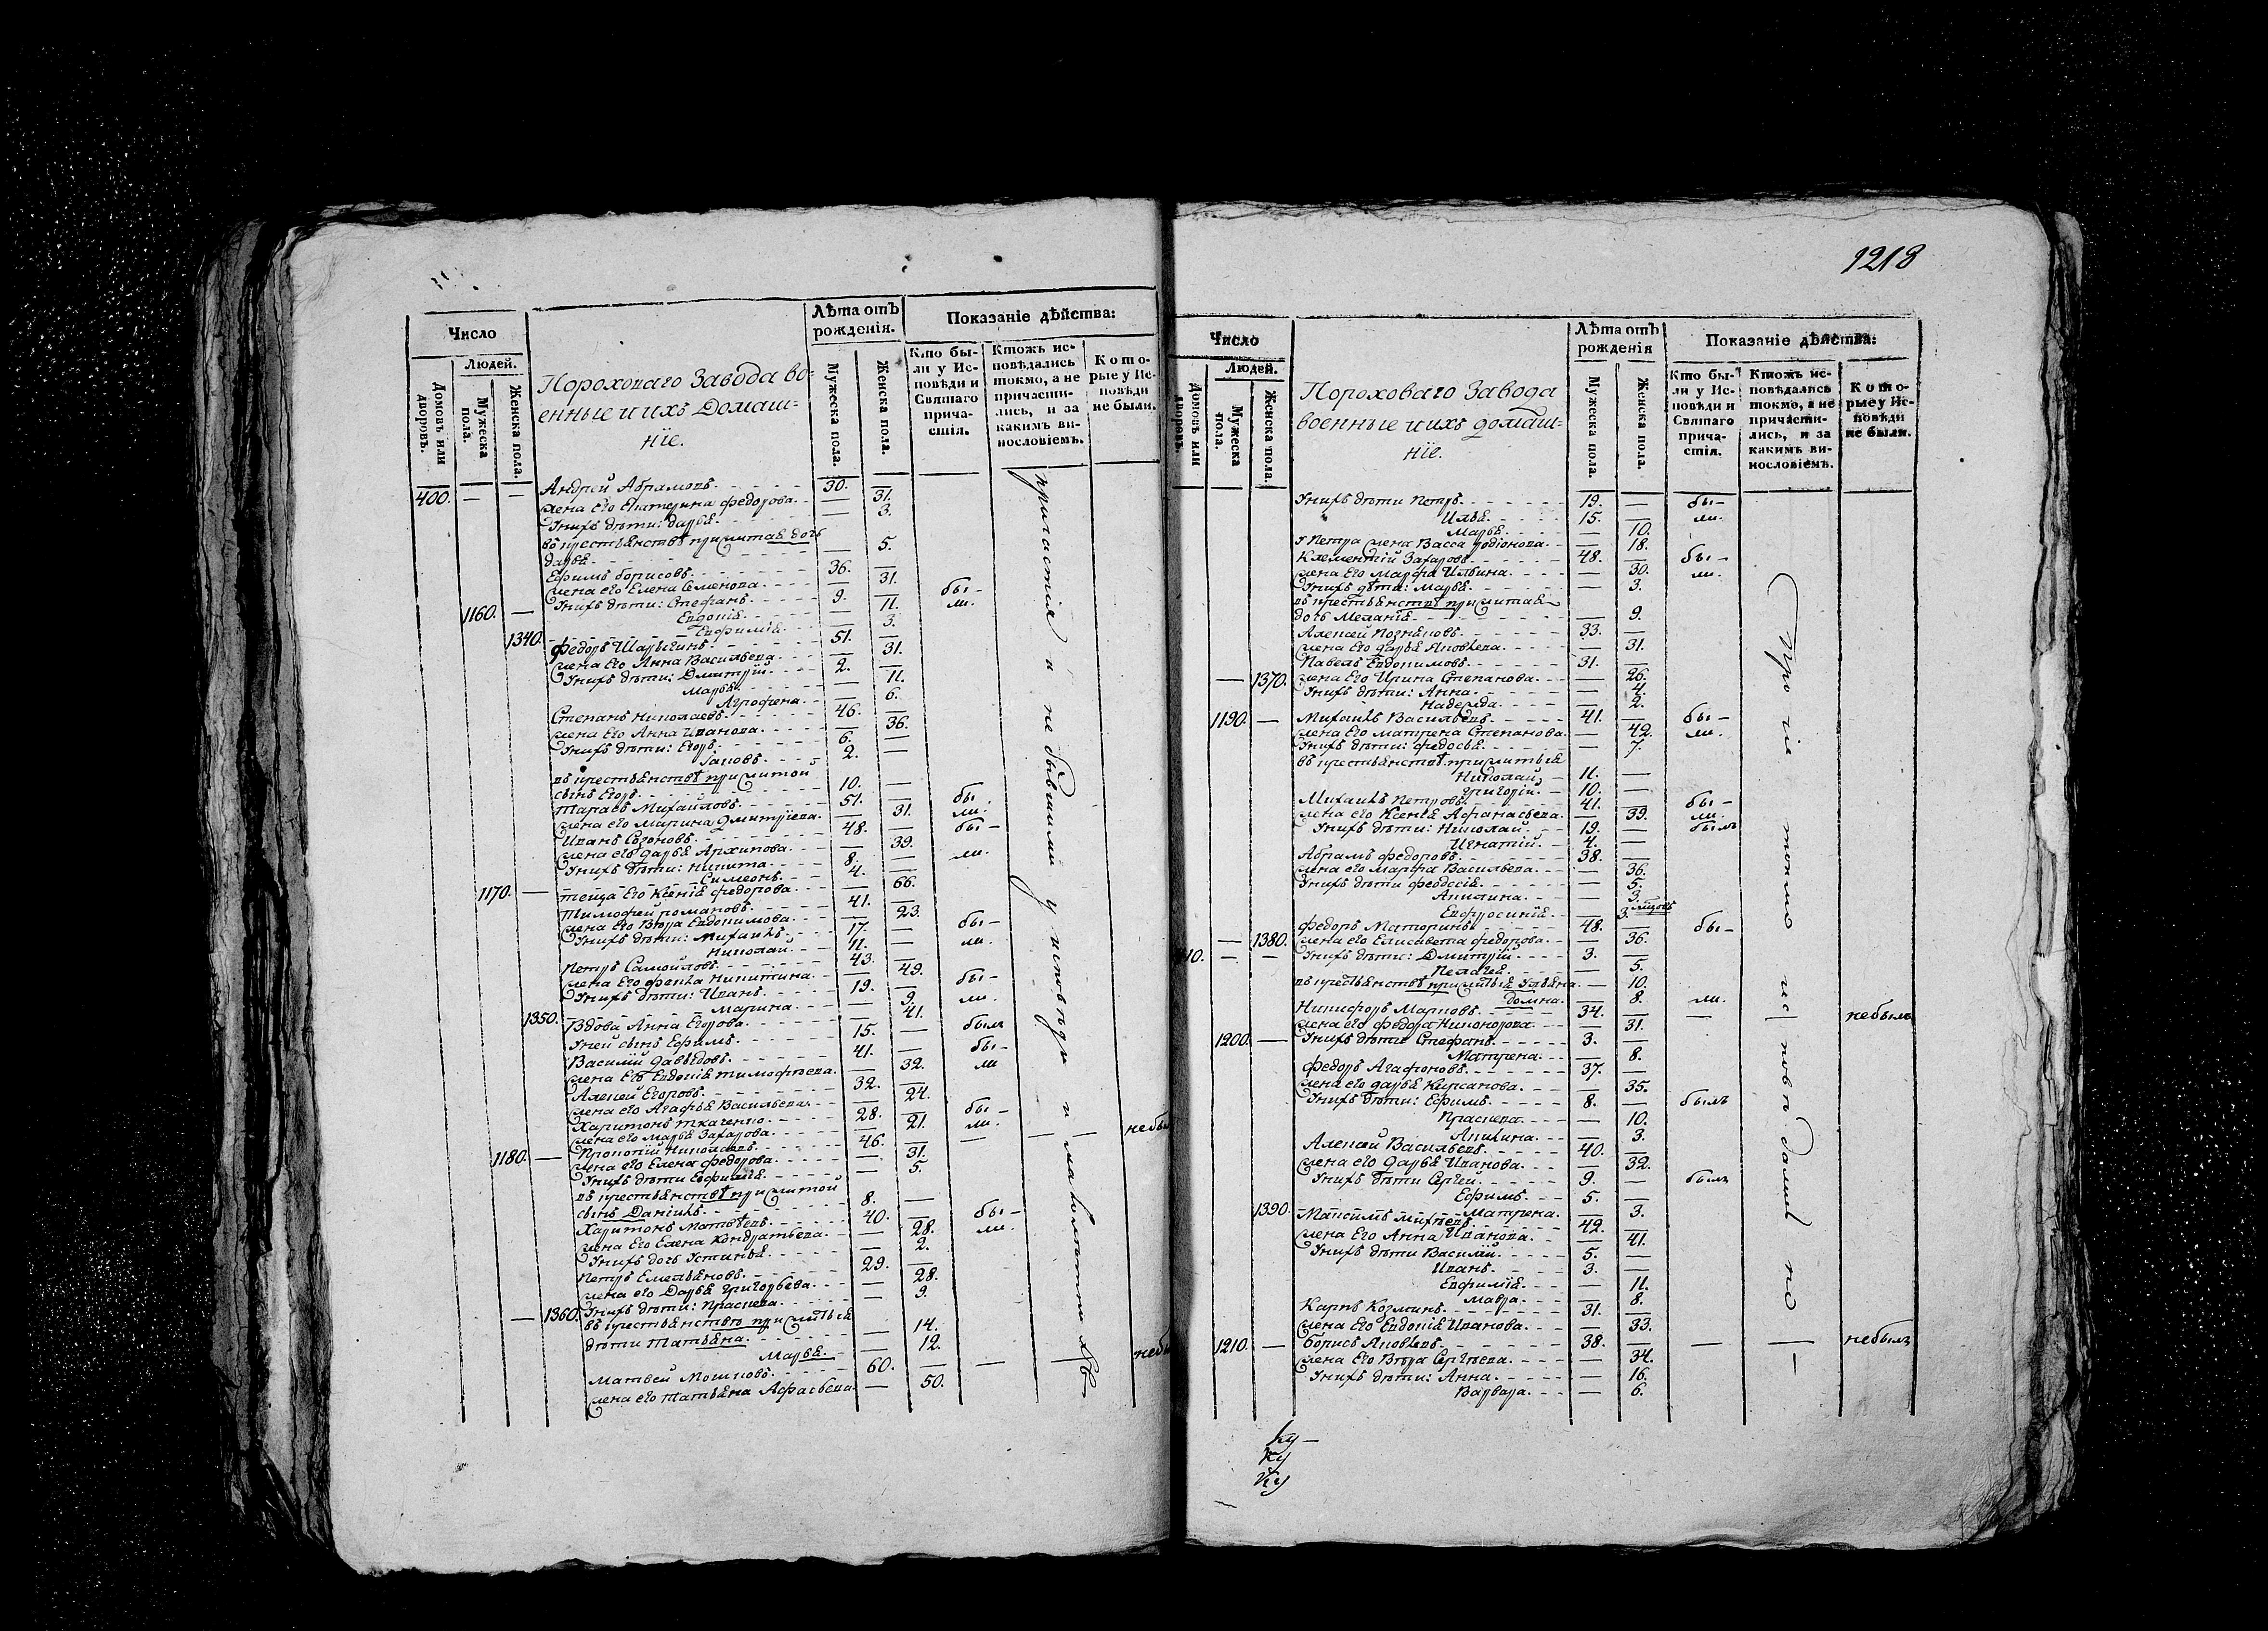 1213
Число
Людей.
Домовъ или дворовъ.
Мужеска пола.
Женска пола.
Пороховаго Завода во=
енные и ихъ Домаш=
нїе.
Лѣта отъ рожденія.
Мужеска пола.
Женска пола.
Показаніе дѣйства:
Кто бы-
ли у Ис-
повѣди и
Святаго
прича-
стія.
Ктожъ ис-
повѣдались
токмо, а не
причасти-
лись, и за
какимъ ви-
нословіемъ.
Кото-
рые у Ис-
повѣди
не были.
400. — — Андрей Абрамовъ. 30. —
жена Его Екатерина Федорова. — 31.
У нихъ дѣти: Дарья. — 3.
въ крестьянствѣ прижитая дочь
Дарья. — 5.
Ефимъ Борисовъ. 36. —
жена его Елена Семенова. — 31. бы-
1160. — У нихъ дѣти: Стефанъ. 9. — ли.
Евдокія. — 11.
1340. Евфимія. — 3.
Федоръ Шарыгинъ. 51. —
жена Его Анна Васильева. — 31.
У нихъ дѣти: Дмитрій. 2. —
Марья. — 11.
Агрофена. — 6.
Степанъ Николаевъ. 46. —
жена Его Анна Иванова. — 36.
У нихъ дѣти: Егоръ. 6. —
Іаковъ. 2. —
въ крестьянствѣ прижитой
сынъ Егоръ. 10. —
Тарасъ Михайловъ. 51. — бы
жена его Марина Дмитріева. — 31. ли.
Иванъ Созоновъ. 48. — бы-
жена его Дарья Архипова. — 39.
У нихъ дѣти: Никита. 8. — ли.
Симеонъ. 4. —
1170. — теща Его Ксенія Федорова. — 66.
Тимофей Романовъ. 41. —
жена Его Вѣра Евдокимова. — 23.
У нихъ дѣти: Михаилъ. 17. — бы-
Николай. 11. — ли.
Петръ Самойловъ. 43. —
жена Его Фекла Никитина. — 49.
У нихъ дѣти: Иванъ. 19. — бы-
Марина. — 9. ли.
1350. Вдова Анна Егорова. — 41.
У ней сынъ Ефимъ. 15. — былъ
Василій Давыдовъ. 41. — бы-
жена Его Евдокія Тимофѣева. — 32. ли
Алексей Егоровъ. 32. —
жена его Агафья Васильева. — 24.
Харитонъ Ткаченко. 28. — бы-
жена его Марья Захарова. — 21. ли.
1180. — Прокопій Николаевъ. 46. — — — небы
жена его Елена Федорова. — 31.
У нихъ дѣти Евфимія. — 5.
въ крестьянствѣ прижитой
сынъ Даніилъ. 8. —
Харитонъ Матвѣевъ. 40. — бы-
жена Его Елена Кондратьева. — 28. ли.
У нихъ дочь Устинья. — 2.
Петръ Емельяновъ. 29. —
жена его Дарья Григорьева. — 28.
— 1360. У нихъ дѣти: Прасковья. — 9.
въ крестьянствѣ прижитыя
дѣти Татьяна. — 14.
Марья. — 12.
Матвей Мошковъ. 60. — — — небы
жена его Татьяна — 50.
причастія а не бывшими у исповѣди
Число
Людей.
Домовъ или дворовъ.
Мужеска пола.
Женска пола.
Пороховаго Завода
военные и ихъ домаш=
нїе.
Лѣта отъ рожденія
Мужеска пола.
Женска пола.
Показаніе дѣйства:
Кто бы-
ли у Ис-
повѣди и
Святаго
прича-
стія.
Ктожъ ис-
повѣдались
токмо, а не
причасти-
лись, и за
какимъ ви-
нословіемъ.
Кото-
рые у Ис-
повѣди
не были.
У нихъ дѣти Петръ. 19. — бы-
Илья. 15. — ли.
Марья. — 10.
У Петра жена Васса Родіонова. — 18.
Климентій Захаровъ. 48. — бы-
жена Его Марфа Ильина. — 30. ли.
У нихъ дѣти: Марья. — 3.
въ крестьянствѣ прижитая
дочь Меланія. — 9.
Алексей Позняковъ. 33. —
жена Его Дарья Яковлева. — 31.
Павелъ Евдокимовъ. 31. —
— 1370. жена Его Ирина Степанова. — 26.
У нихъ дѣти: Анна. — 4.
Надежда. — 2.
1190. — Михаилъ Васильевъ. 41. — бы-
жена Его Матрена Степанова. — 42. ли.
У нихъ дѣти: Федосья. — 7.
въ крестьянствѣ прижитыя
Николай 11. —
Григорій. 10. —
Михаилъ Петровъ. 41. — бы-
жена его Ксенія Афанасьева. — 39. ли.
У нихъ дѣти: Николай. 19. — былъ
Игнатій. 4. —
Абрамъ Федоровъ. 38. —
жена его Марфа Васильева. — 36.
У нихъ дѣти Феодосія. — 5.
Акилина. — 3.
Евфросинія. — 3.
Федоръ Маторинъ. 48. — бы-
— 1380. жена его Елисавета Федорова. — 36.
410. — — У нихъ дѣти: Дмитрій. 3. —
Пелагея. — 5.
въ крестьянствѣ прижитыя Ульяна. — 10.
Домна. — 8. ли.
Никифоръ Марковъ. 34. — — небылъ
жена его Федора Никонорова. — 31.
1200. — У нихъ дѣти Стефанъ. 3. —
Матрена. — 8.
Федоръ Агафоновъ. 37. —
жена его Дарья Кирсанова. — 35.
У нихъ дѣти: Ефимъ. 8. — былъ
Прасковья. — 10.
Акилина. — 3.
Алексей Васильевъ. 40. —
жена его Дарья Иванова. — 32.
У нихъ дѣти Сергей. 9. — былъ
Ефимъ. 5. —
1390. Матрена. — 3.
Максимъ Михѣевъ. 42. —
жена Его Анна Иванова. — 41.
У нихъ дѣти Василій. 5. —
Иванъ. 3. —
Евфимія. — 11.
Мавра. — 8.
Карпъ Козминъ. 31. —
жена Его Евдокія Иванова. — 33.
1210. — Борисъ Яковлевъ. 38. — — — небылъ
жена Его Вѣра Сергѣева. — 34.
У нихъ дѣти: Анна. — 16.
Варвара. — 6.
Ку-
Ку
Ку